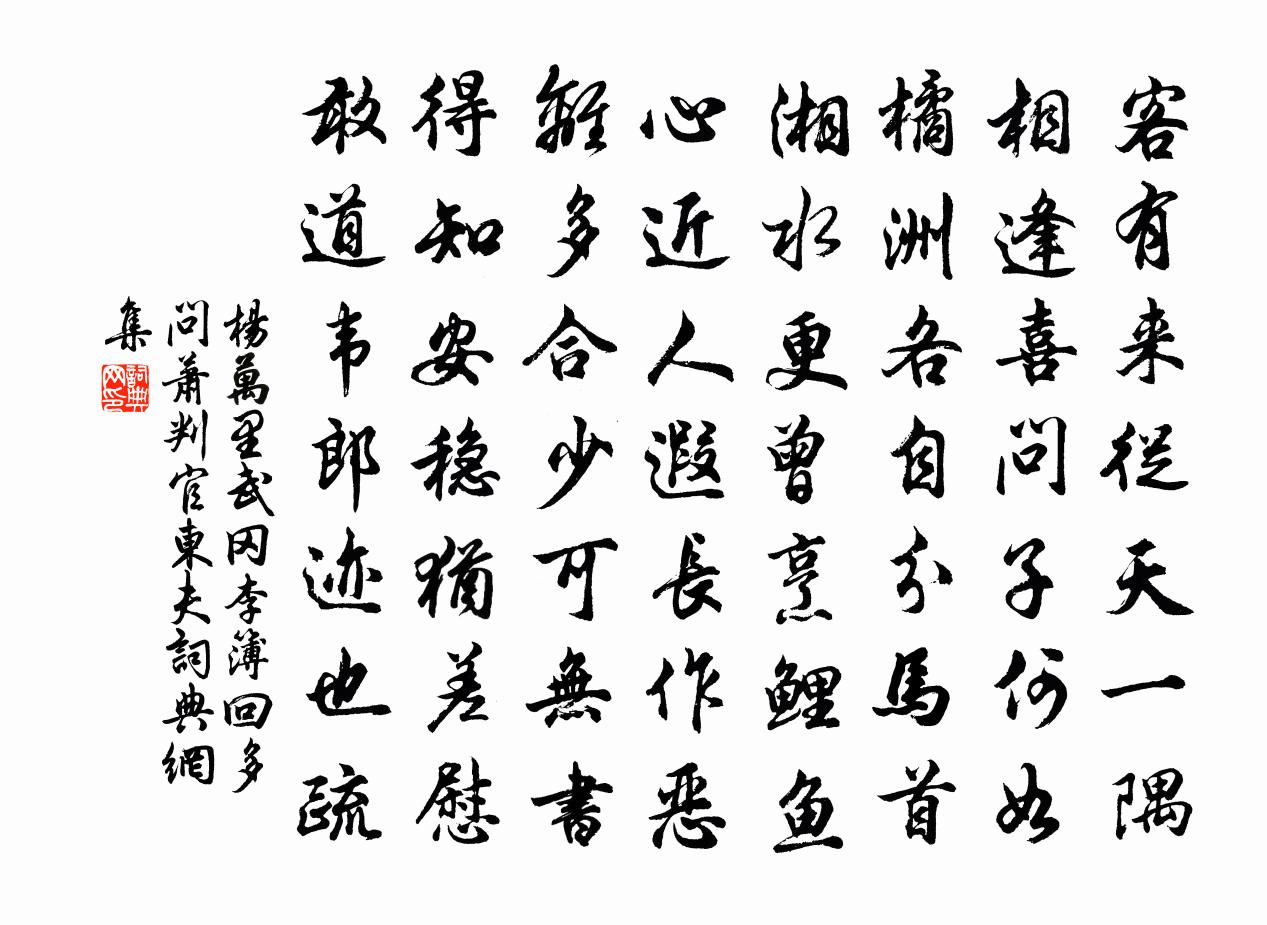 客有来從天一隅
相逢喜問子何如
橘洲各自分馬首
湘水更曾烹鲤鱼
心近人遐長作恶
離多合少可無書
得知安稳猶差慰
敢道韦郎迹也疏
楊萬里武冈李簿回多
問蕭判官東夫詞典網
集
詞典网印